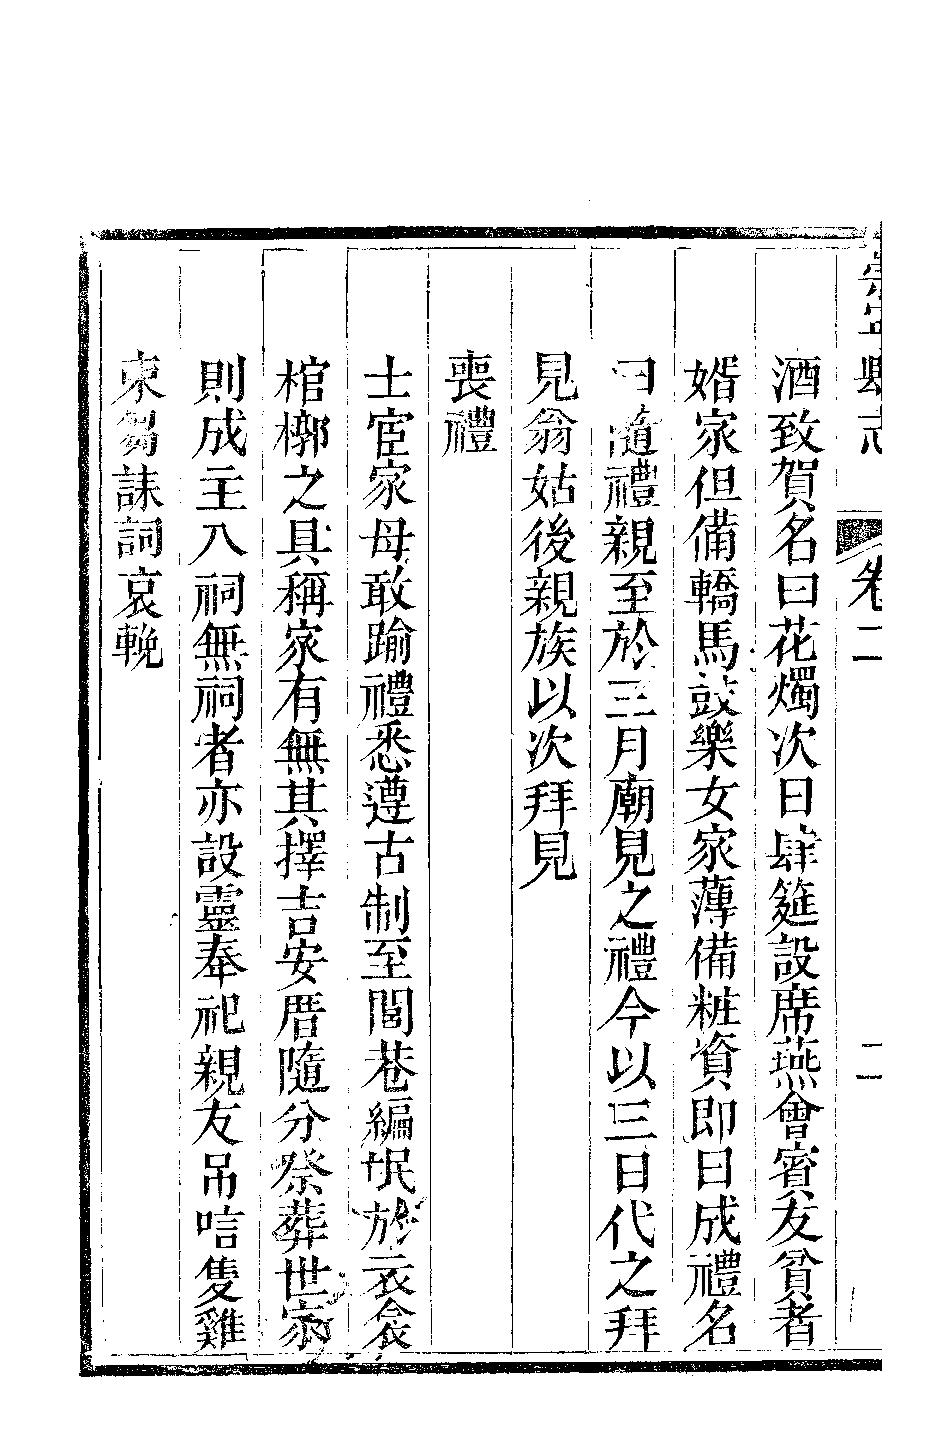 崇寧縣志 卷二 二
酒致賀名曰花燭次日肆筵設席燕會賓友貧者
婿家但備轎馬鼓樂女家薄備粧資即日成禮名
曰隨禮親至於三月廟見之禮今以三日代之拜
見翁姑後親族以次拜見
喪禮
士宦家毋敢踰禮悉遵古制至閭巷編氓於衣衾
棺槨之具稱家有無其擇吉安厝隨分祭葬世家
則成主入祠無祠者亦設靈奉祀親友吊唁隻雞
束芻誄詞哀輓